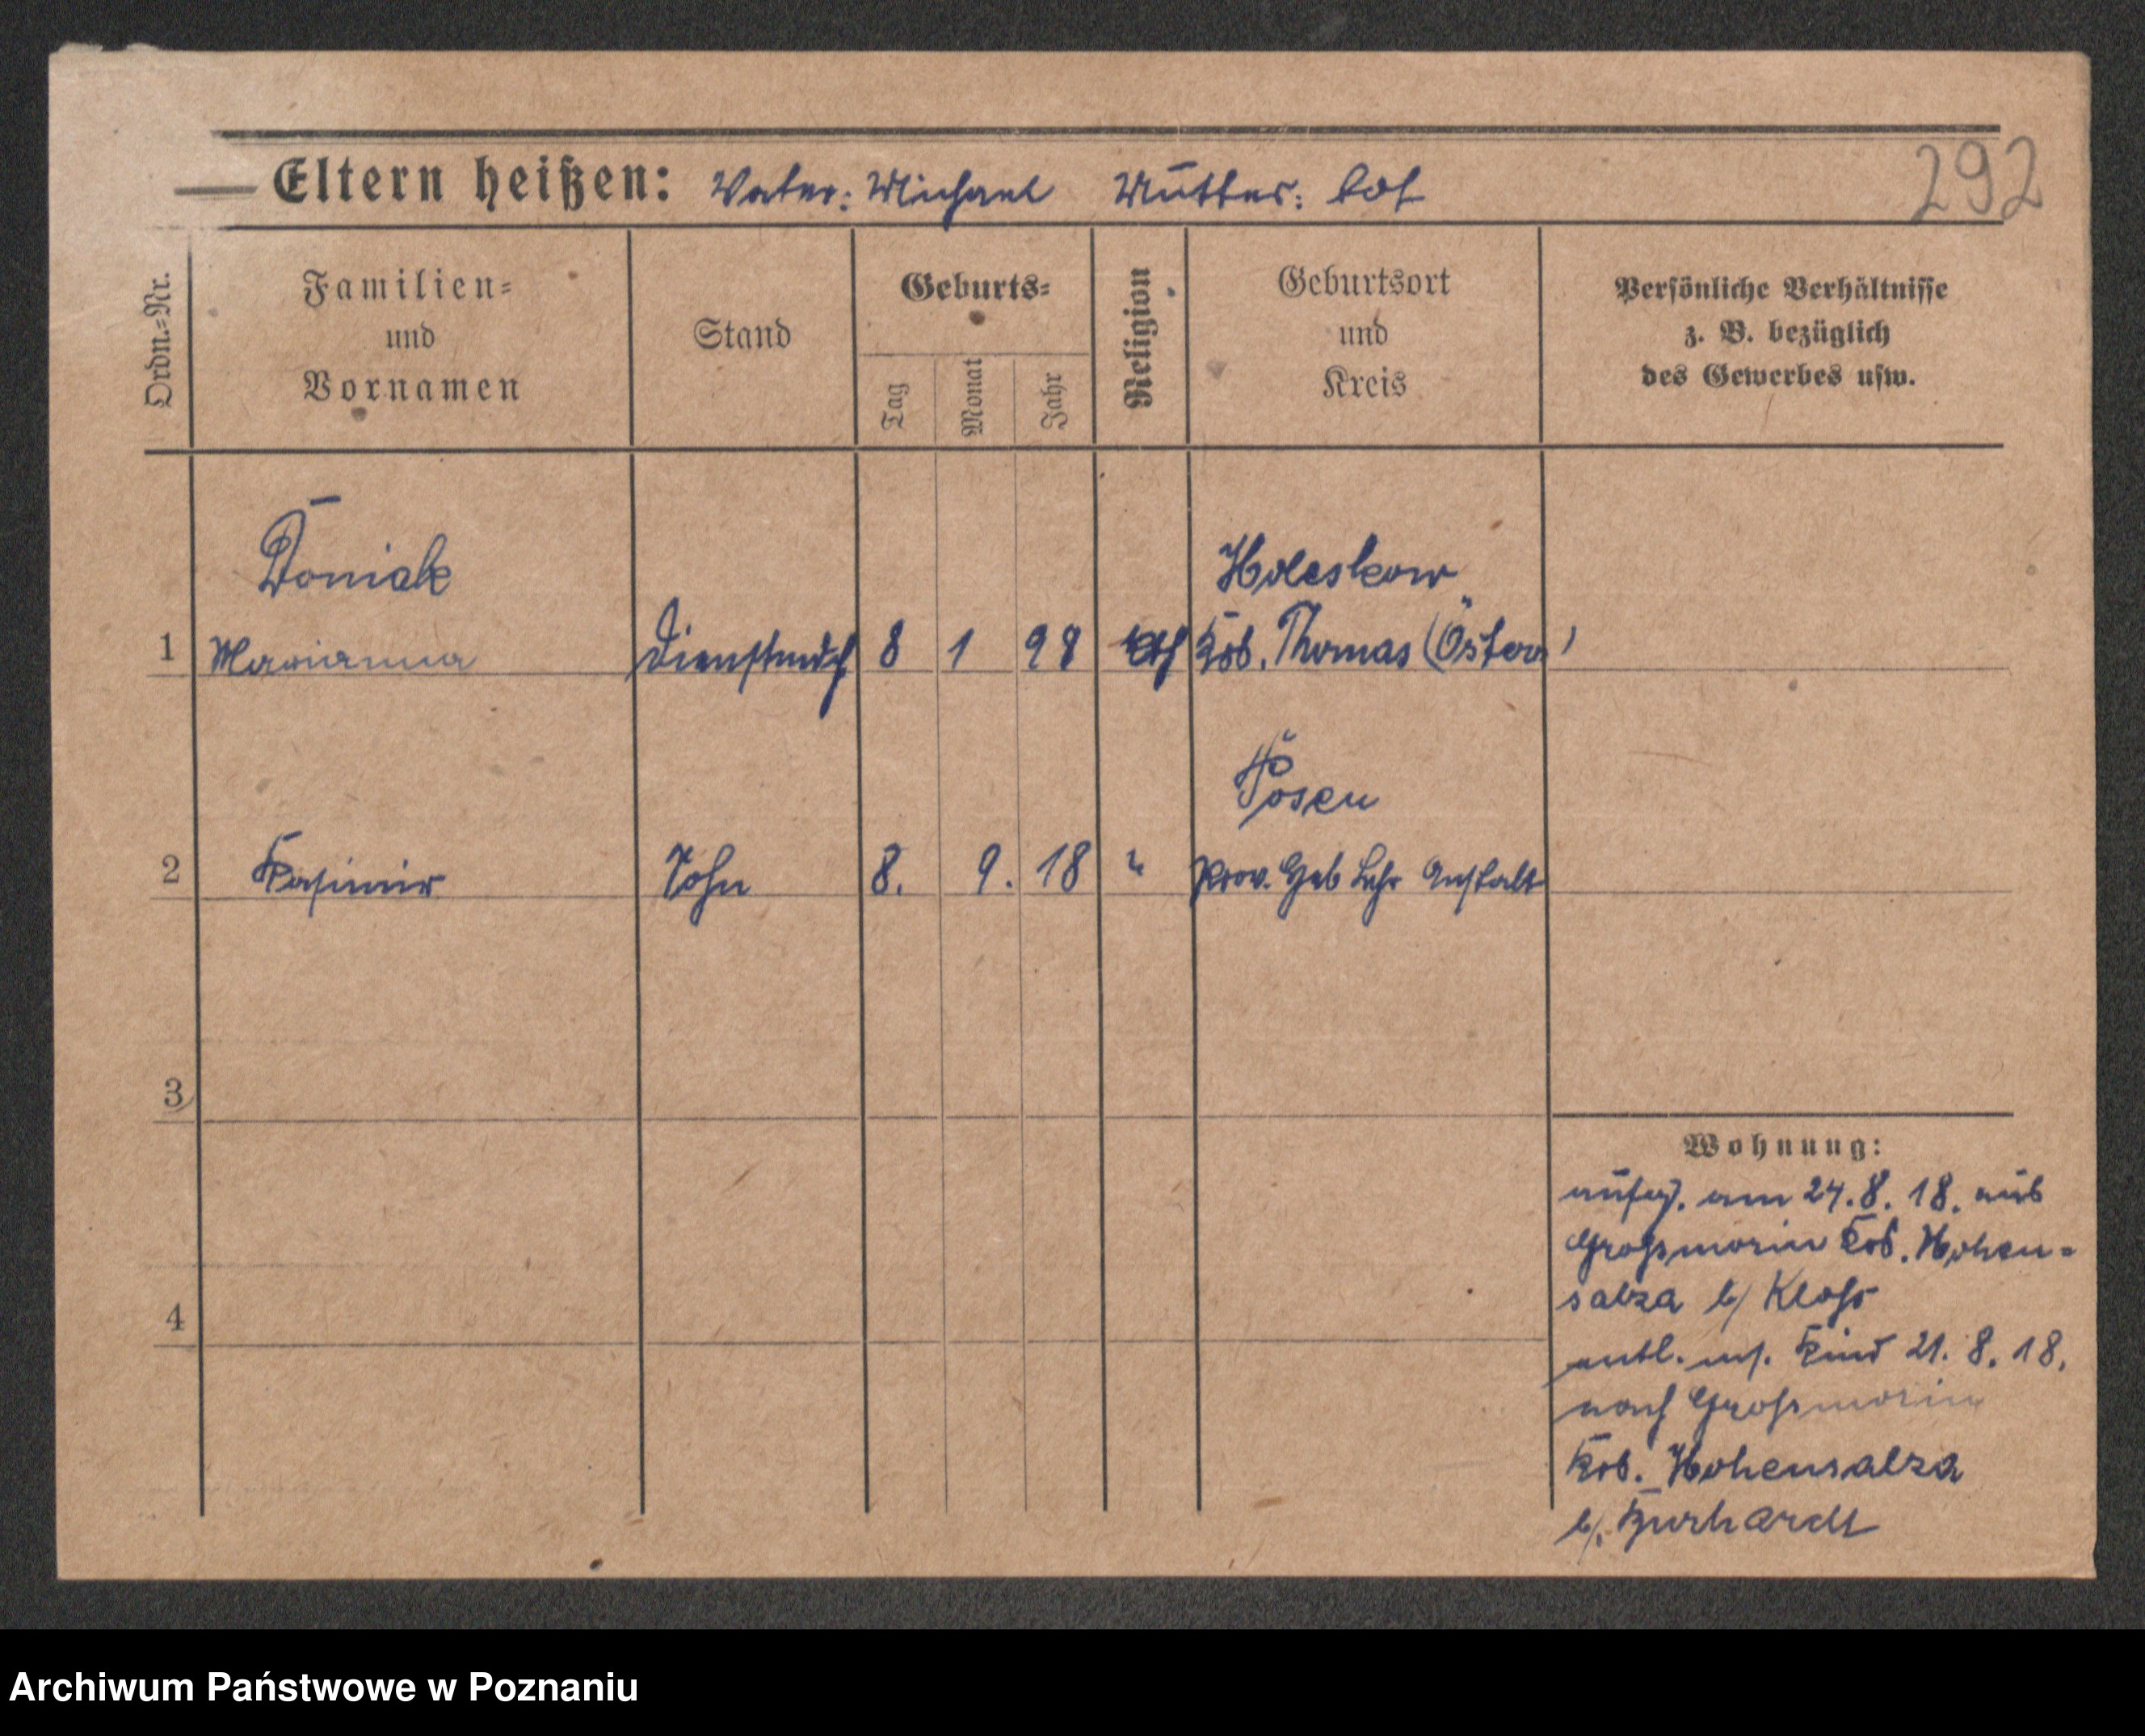 Eltern heißen: Vater: Michael Mutter: tot
292
Ordn.=Nr.
Familien=
und
Vornamen
Stand
Geburts=
Tag
Monat
Jahr
Religion
Geburtsort
und
Kreis
Persönliche Verhältnisse
z. B. bezüglich
des Gewerbes usw.
Doniak
Holeskow
1 Marianna Dienstmdch 8 1 98 kth Krs. Thomas (Österr)
Posen
2 Kasimir Sohn 8. 9. 18 " Prov. Geb Lehr Anstalt
3
4
Wohnung:
am 24.8.18. aus
Grossmorin Krs. Hohen=
salza b/ Kloss
entl. m. Kind 21.8.18.
nach Grossmorin
Krs. Hohensalza
b/. Burhardt
Archiwum Państwowe w Poznaniu